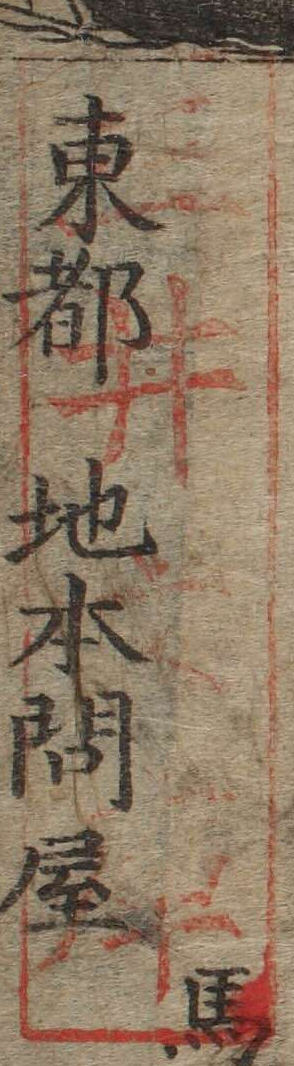 馬
東都 地本問屋